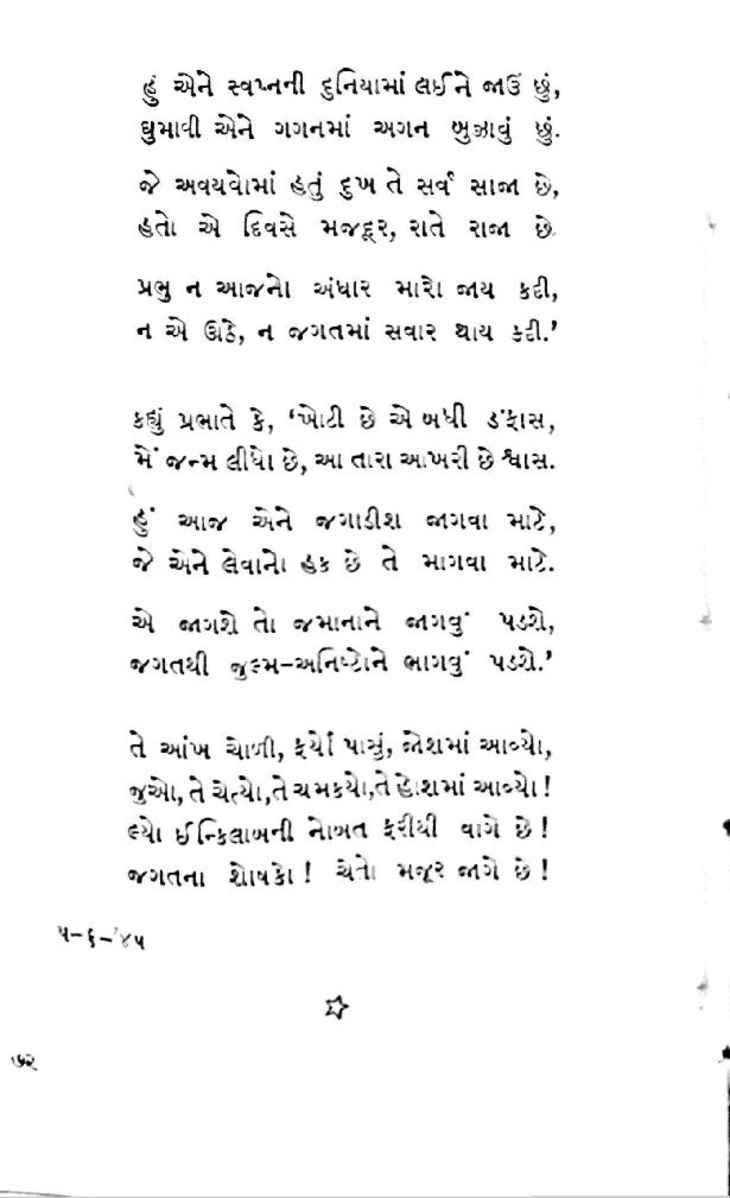 હું એને સ્વપ્નની દુનિયામાં લઈને જાઉં છું,
ઘુમાવી એને ગગનમાં અગન બુઝાવું છું.
જે અવયવોમાં હતું દુખ તે સર્વ સાજા છે,
હતો એ દિવસે મજદૂર, રાતે રાજા છે
પ્રભુ ન આજનો અંધાર મારો જાય કદી,
ન એ ઊઠે, ન જગતમાં સવાર થાય કદી.’
કહ્યું પ્રભાતે કે, ‘ખોટી છે એ બધી ડંફાસ,
મેં જન્મ લીધો છે, આ તારા આખરી છે શ્વાસ.
હું આજ એને જગાડીશ જાગવા માટે,
જે એને લેવાનો હક છે તે માગવા માટે.
એ જાગશે તો જમાનાને જાગવું પડશે,
જગતથી જુલ્મ-અનિષ્ટોને ભાગવું પડશે.’
તે આંખ ચોળી, ફર્યો પાસું, જોશમાં આવ્યો,
જુઓ, તે ચેત્યો, તે ચમકયો, તે હોશમાં આવ્યો!
લ્યો ઈન્કિલાબની નોબત ફરીથી વાગે છે!
જગતના શોષકો! ચેતો મજૂર જાગે છે!
૫-૬-’૪૫
૭૨